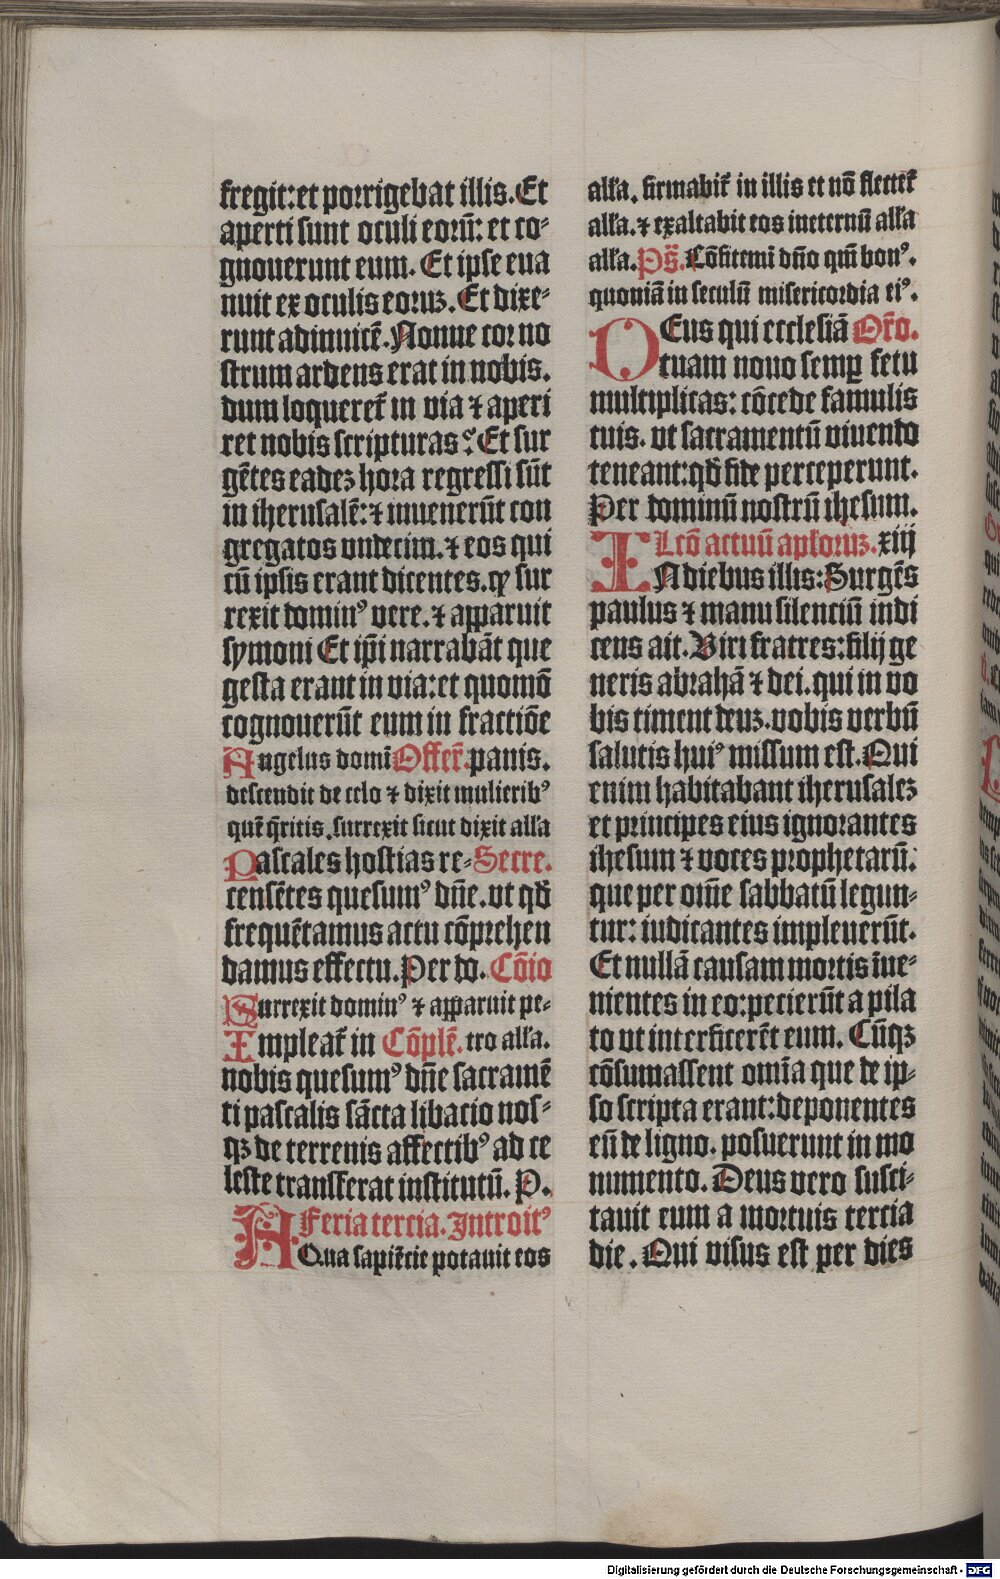 fregit: et porrigebat illis. Et
aperti sunt oculi eorũ: et co-
gnouerunt eum. Et ipse eua
nuit ex oculis eoruz. Et dixe-
runt adinuicẽ. Nonne cor no
strum ardens erat in nobis.
dum loqueret̃ in via ⁊ aperi
ret nobis scripturas? Et sur
gẽtes eadez hora regressi sũt
in iherusalẽ: ⁊ inuenerũt con
gregatos vndecim. ⁊ eos qui
cũ ipsis erant dicentes. ꝙ sur
rexit dominꝰ vere. ⁊ apparuit
symoni Et ip̃i narrabãt que
gesta erant in via: et quomõ
cognouerũt eum in fractiõe
Angelus domĩ Offer̃. panis.
descendit de celo ⁊ dixit mulieribꝰ
quẽ q̃ritis. surrexit sicut dixit all'a
Pascales hostias re- Secre.
censẽtes quesumꝰ dñe. vt qđ
frequẽtamus actu cõprehen
damus effectu. Per do. Cõio
Surrexit dominꝰ ⁊ apparuit pe-
Impleat̃ in Cõplẽ. tro all'a.
nobis quesumꝰ dñe sacramẽ
ti pascalis sãcta libacio nos-
qz de terrenis affectibꝰ ad ce
leste transferat institutũ. P.
Feria tercia. Introitꝰ
AQua sapiẽcie potauit eos
all'a. firmabit̃ in illis et nõ flectet̃
all'a. ⁊ exaltabit eos ineternũ all'a
all'a. Ps̃. Cõfitemĩ dño qm̃ bonꝰ.
quoniã in seculũ misericordia eiꝰ.
DEus qui ecclesiã Or̃o.
tuam nouo semꝑ fetu
multiplicas: cõcede famulis
tuis. vt sacramentũ viuendo
teneant: qđ fide perceperunt.
Per dominũ nostrũ ihesum.
Lcõ actuũ apl'oruz. xiij
INdiebus illis: Surgẽs
paulus ⁊ manu silenciũ indi
cens ait. Viri fratres: filij ge
neris abrahã ⁊ dei. qui in vo
bis timent deuz. vobis verbũ
salutis huiꝰ missum est. Qui
enim habitabant iherusalez
et principes eius ignorantes
ihesum ⁊ voces prophetarũ.
que per om̃e sabbatũ legun-
tur: iudicantes impleuerũt.
Et nullã causam mortis ĩue-
nientes in eo: pecierũt a pila
to vt interficerẽt eum. Cũqz
cõsumassent om̃ia que de ip-
so scripta erant: deponentes
eũ de ligno. posuerunt in mo
numento. Deus vero susci-
tauit eum a mortuis tercia
die. Qui visus est per dies
Digitalisierung gefördert durch die Deutsche Forschungsgemeinschaft - DFG